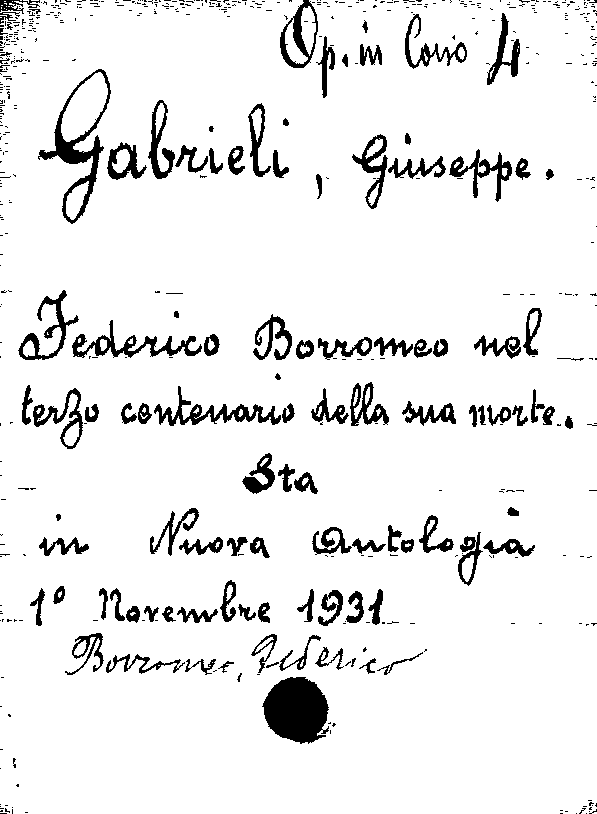 Op. in Corso 4
Gabrieli, Giuseppe.
Federico Borromeo nel
terzo centenario della sua morte.
Sta
in Nuova Antologia
1º Novembre 1931
Borromeo, Federico